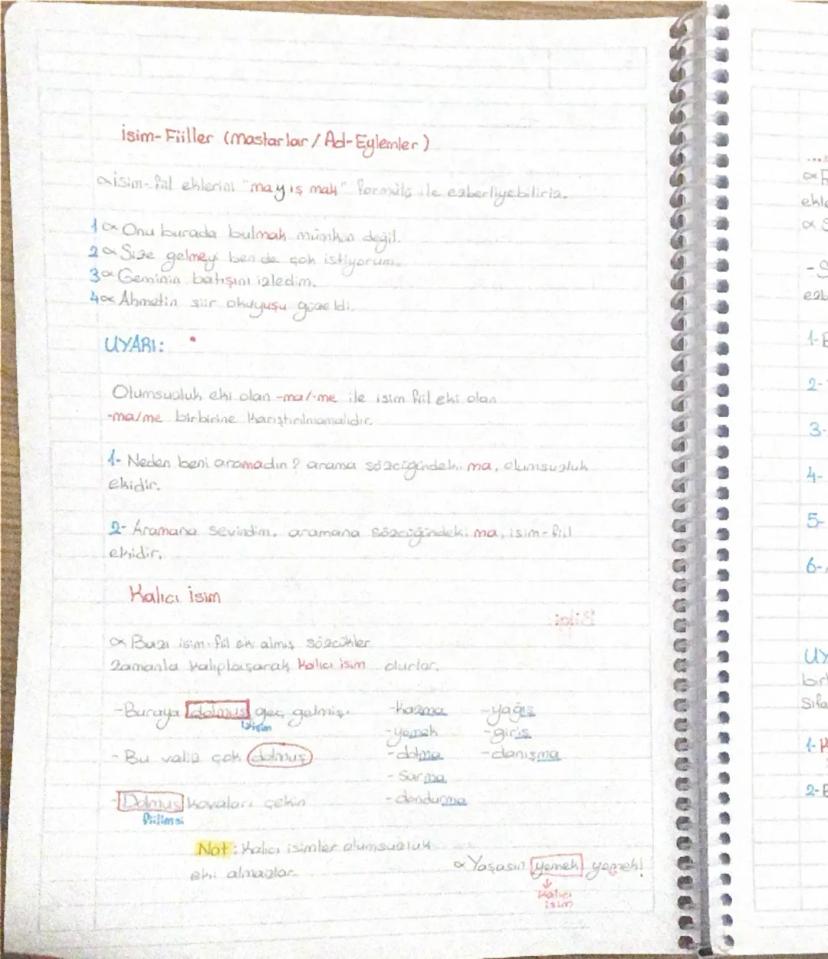 İsim-Fiiller (Mastarlar / Ad-Eylemler)
∝ İsim-fiil eklerini "ma y ış mak" formülü ile ezberliyebiliriz.
1 ∝ Onu burada bulmak mümkün değil.
2 ∝ Size gelmeyi ben de çok istiyorum.
3 ∝ Geminin batışını izledim.
4 ∝ Ahmetin şiir okuyuşu güzeldi.
UYARI:
Olumsuzluk eki olan -ma/-me ile isim fiil eki olan
-ma/me birbirine karıştırılmamalıdır.
1- Neden beni aramadın? arama sözcüğündeki ma, olumsuzluk
ekidir.
2- Aramana sevindim. aramana sözcüğündeki ma, isim-fiil
ekidir.
Kalıcı İsim
∝ Bazı isim-fiil ek almış sözcükler
zamanla kalıplaşarak kalıcı isim olurlar.
-Buraya dolmuş geç gelmiş. -kazma -yağış
isim -yemek -giriş
- Bu valiz çok dolmuş -dolma -danışma
-sarma
-Dolmuş kovaları çekin -dondurma
fiilimsi
Not: Kalıcı isimler olumsuzluk
eki almazlar.
∝ Yaşasın yemek yemek!
↓
kalıcı
isim
∝
ekle
∝ S
- S
ezb
1- E
2-
3-
4-
5-
6-
UY
birb
Sıfa
1- K
2- B